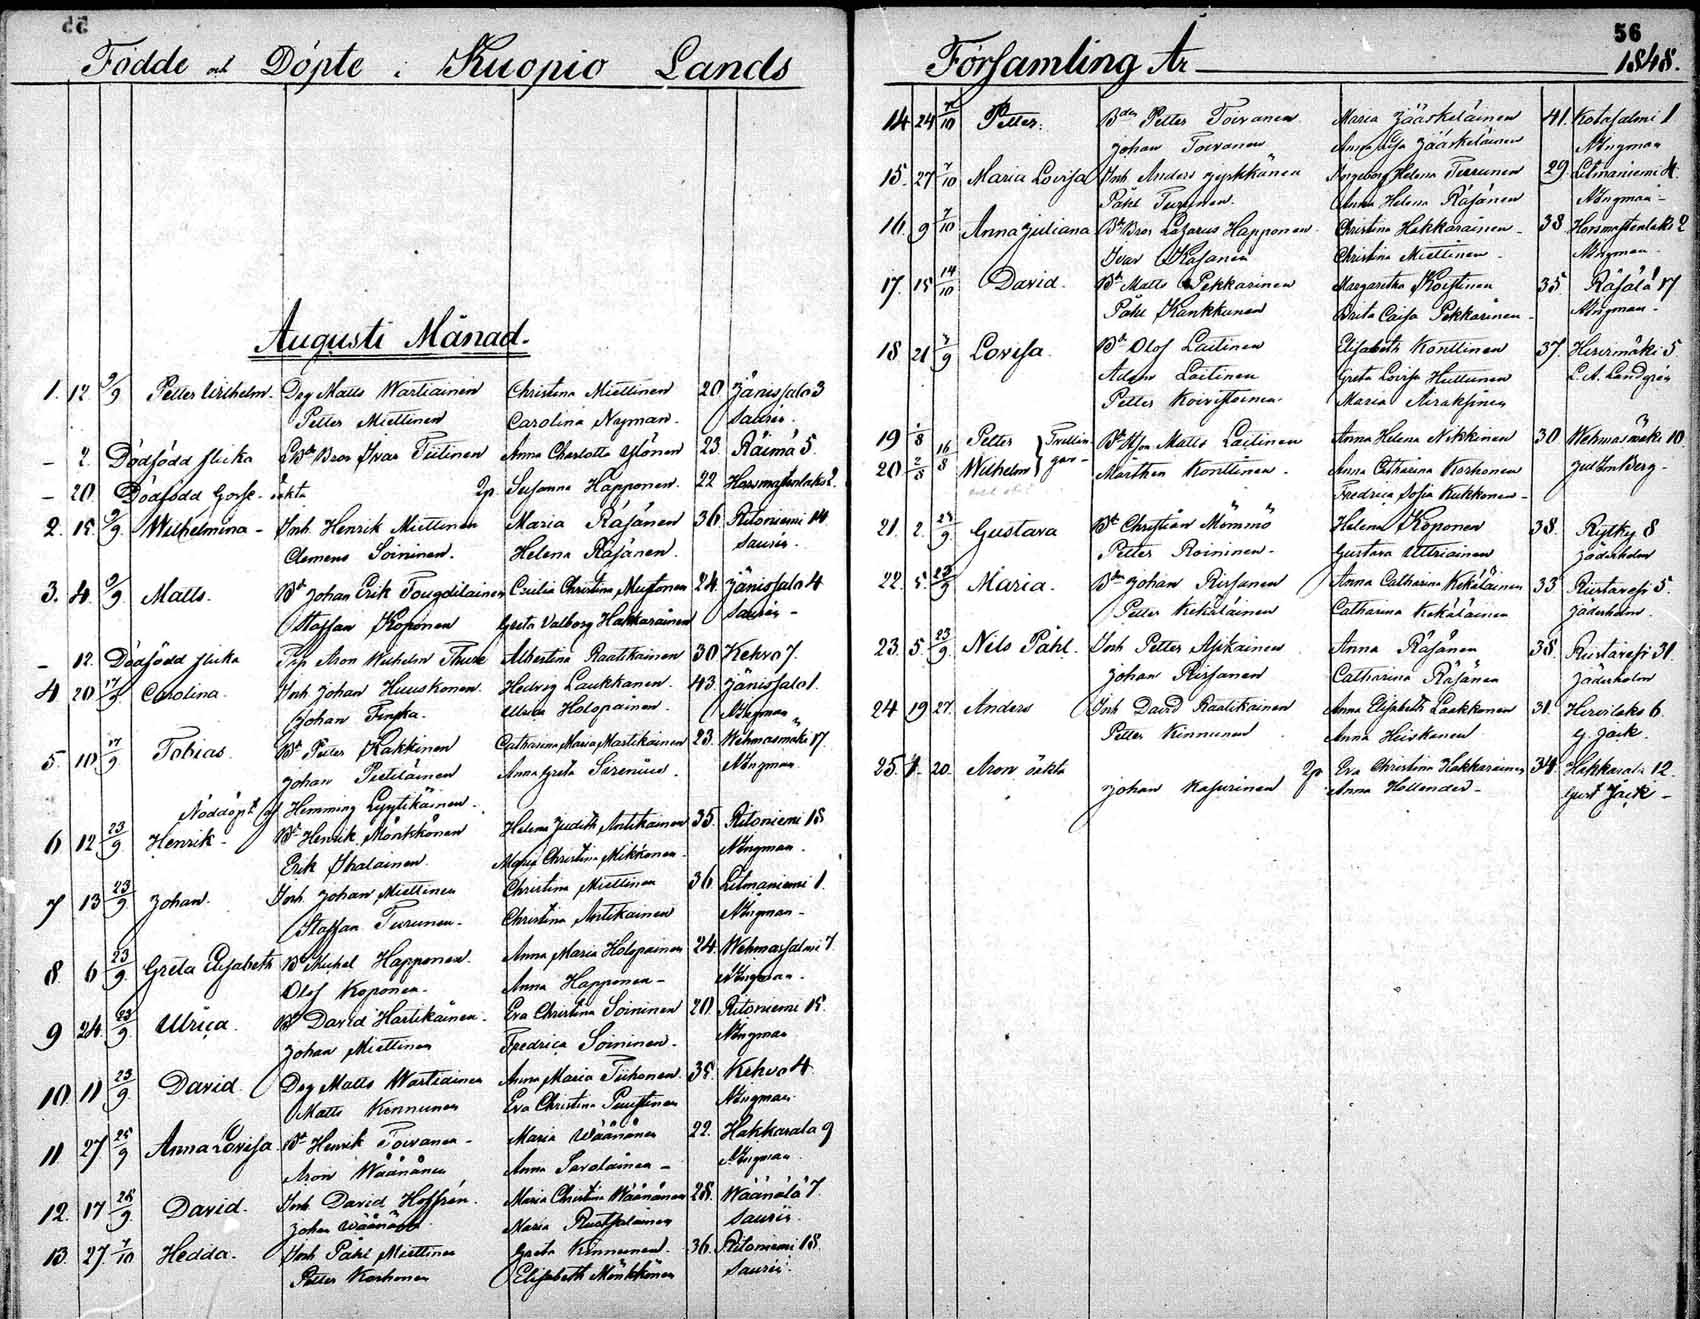 55
Födde och Döpte i Kuopio Lands
Augusti Månad.
1. 12 2/9 Petter Wilhelm. Drg Matts Wartiainen Christina Miettinen 20 Jänissalo 3
Petter Miettinen Carolina Nyman. Saurén.
– 2. Dödfödd flicka Bd Bror Ivar Tiitinen Anna Charlotta Ylönen 23. Räimä 5.
– 20. Dödfödd Gosse oäkta Pp. Susanna Happonen. 22 Horsmastenlaks 2.
2. 15. 2/9 Wilhelmina – Inh Henrik Miettinen Maria Räsänen 36 Ritoniemi 14
Clemens Soininen. Helena Räsänen. Saurén.
3. 4. 2/9 Matts. Bd Johan Erik Tougdilainen Cecilia Christina Mustonen 24. Jänissalo 4
Staffan Koponen Greta Valborg Hakkarainen Saurén –
– 12. Dödfödd flicka Pip Aron Wilhelm Thure Albertina Raatikainen 30 Kehvo 7.
4 20 17/9 Carolina. Inh Johan Huuskonen. Hedvig Laukkanen. 43. Jänissalo 1.
Johan Ulrica Holopainen. Nyman
5. 10 17/9 Tobias Bd Petter Kakkinen Catharina Maria Martikainen 23. Wehmasmäki 17.
Johan Pietiläinen Anna Greta Sirenius. Nyman.
Nöddöpt af Hemming Lyytikäinen.
6 12 23/9 Henrik – Bd Henrik Mönkkönen Helena Judith Antikainen 35. Ritoniemi 18
Erik Ihalainen. Maria Christina Mikkonen – Nyman.
7 13 23/9 Johan. Inh. Johan Miettinen Christina Miettinen 36 Litmaniemi 1.
Staffan Turunen. Christina Antikainen Nyman –
8. 6 23/9 Greta Elisabeth Bd Michel Happonen. Anna Maria Holopainen 24. Wehmassalmi 7.
Olof Koponen. Anna Happonen – Nyman.
9 24. 23/9 Ulrica. Bd David Hartikainen. Eva Christina Soininen 20. Ritoniemi 15.
Johan Miettinen Fredrica Soininen. Nyman
10. 11 23/9 David. Drg Matts Wartiainen Anna Maria Tiihonen. 35. Kehvo 4.
Matts Kinnunen Eva Christina Puustinen Nyman.
11. 27 25/9 Anna Lovisa Bd Henrik Toivanen – Maria Wäänänen 22. Hakkarala 9
Aron Wäänänen Anna Savolainen – Nyman.
12. 17 28/9 David. Inh David Hoffrén. Maria Christina Wäänänen 28. Wäänälä 7.
Johan Wäänänen Maria Saurén.
13. 27. 7/10 Hedda. Inh Påhl Miettinen Greta Kinnunen. 36. Ritoniemi 18.
Petter Korhonen Elisabeth Mönkkönen Saurén.
56
Församling År 1848.
14 24 7/10 Petter. Bden Petter Toivanen Maria Jääskeläinen 41. Kotasalmi 1
Johan Toivanen Anna Lisa Jääskeläinen Nyman
15. 27 7/10 Maria Lovisa Inh Anders Ingeborg Helena Turunen 29. Litmaniemi 4.
Påhl Turunen. Anna Helena Räsänen Nyman –
16. 9 7/10 Anna Juliana Bd Bror Lazarus Happonen. Christina Hakkarainen – 38 Horsmastenlaks 2
Ivar Räsänen Christina Miettinen. Nyman.
17. 15 14/10 David. Bd Matts Pekkarinen Margaretha Koistinen 35. Räsälä 17
Påhl Kankkunen Brita Caisa Pekkarinen – Nyman.
18 21 7/9 Lovisa. Bd Olof Laitinen Elisabeth Konttinen 37. Hirvimäki 5
Adam Laitinen Greta Lovisa Huttunen L. A. Landgrén
Petter Koivistoinen. Maria Airaksinen
19 1/8 16/8 Petter } Tvillingar – Bd Hr Matts Laitinen Anna Helena Nikkinen 30 Wehmasmäki 10
20 2/8 Wilhelm Marthen Konttinen. Anna Catharina Korhonen
Fredrica Sofia Kukkonen –
21. 2. 23/9 Gustava Bd Christian Mömmö Helena Koponen 38. Rytky 8
Petter Roininen – Gustava Uttriainen Jäderholm
22. 5 23/9 Maria. Bden Johan Rissanen Anna Catharina Kekäläinen 33 Riistavesi 5.
Petter Kekäläinen Catharina Kekäläinen Jäderholm.
23. 5. 23/9 Nils Påhl. Inh Petter Asikainen Anna Räsänen 38. Riistavesi 31.
Johan Rissanen Catharina Räsänen Jäderholm
24 19 27. Anders Inh David Raatikainen Anna Elisabeth Laakkonen 31. Hirvilaks 6.
Petter Kinnunen Anna Hiiskanen G. Jack.
25. 1. 20. Aron oäkta Pp Eva Christina Hakkarainen 34. Hakkarala 12.
Johan Kasurinen Anna Hollender – Gust Jack –